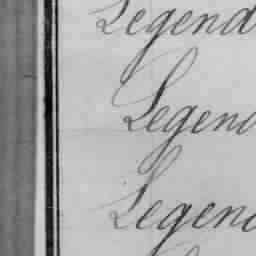 Legend
Legend
Legend